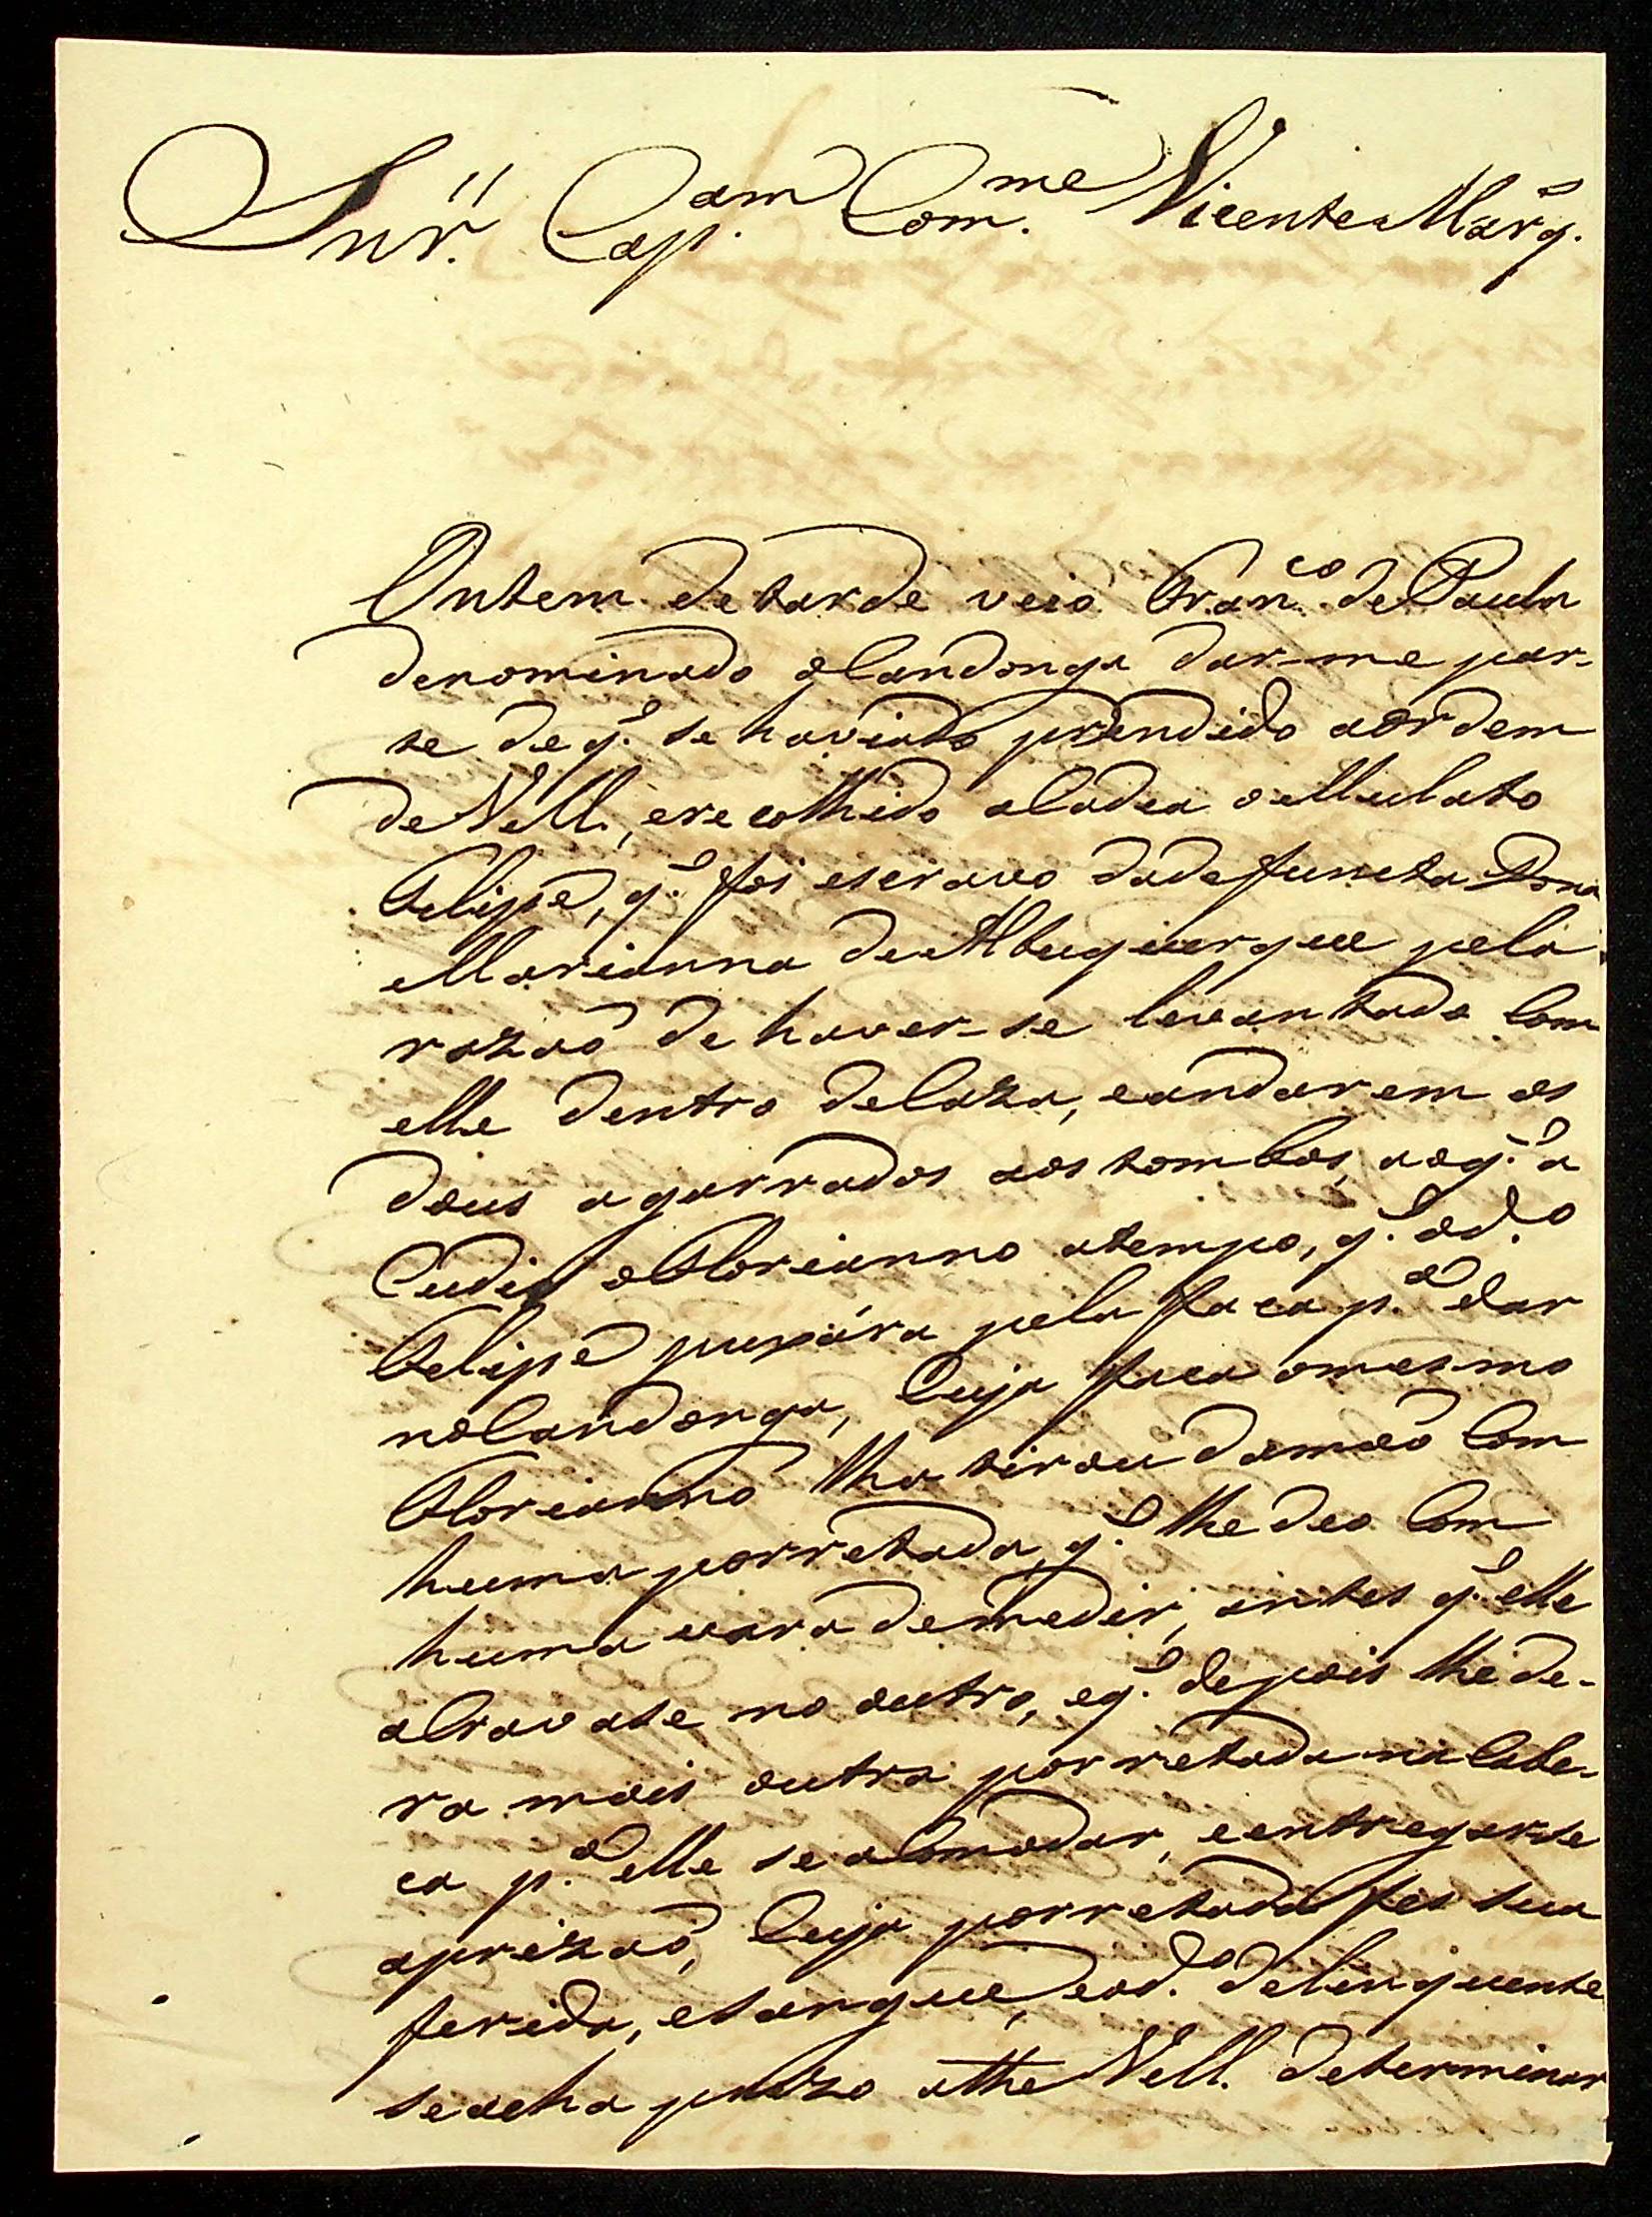 Snr. Cap.am Com.me Vicente Marq.s
Ontem de tarde veio Fran.co de Paula
denominado Calandonga dar-me par-
te de q.e se havia prendido a ordem
de VM., e recolhido a Cadea o Mulato
Felipe, q.e foi escravo da defuncta Dona
Marianna de Albuquerque pela
razaõ de haver-se levantado Com
elle dentro de Caza, e andarem os
dous agarrados aos tombos, ao q.e a
Cudio o Florianno a tempo, q.e o d.o
Felipe puxára pela faca p.a dar
no Candonga, Cuja faca o mesmo
Florianno lha tirou da maõ Com
huma porretada, q.e lhe deo Com
huma vara de medir, antes q.e elle
a Cravase no outro, e q.e depois lhe de-
ra mais outra porretada na Cabe-
ca p.a elle se a Comodar, e entregarse
a prizaõ, Cuja porretada fes sua
ferida, e sangue, e o d.o delinquente
se acha prezo athe VM. determinar